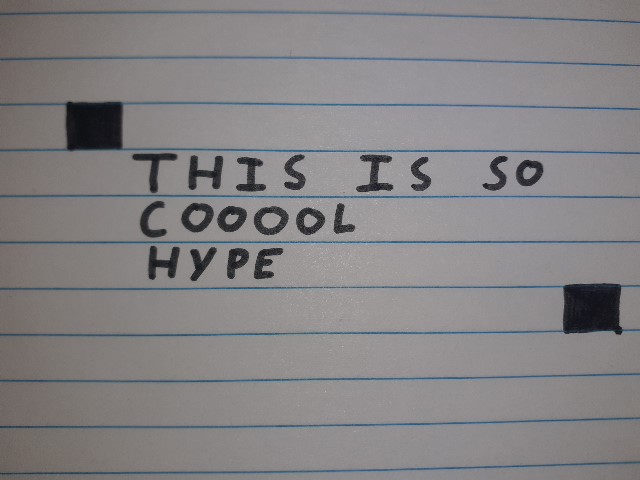 THIS IS SO
COOOOL
HYPE